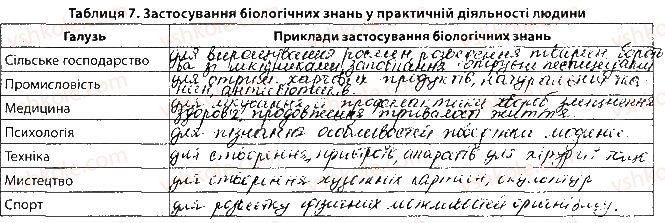 Таблиця 7. Застосування біологічних знань у практичній діяльності людини
Галузь Приклади застосування біологічних знань
Сільське господарство для вирощування рослин, розведення тварин, бороть
ва зі шкідниками, запобігання пестицидами
Промисловість для отрим. харчових продуктів, натуральних тка
нин, антибіотиків.
Медицина для лікування й профілактики хвороб, зміцнення
здоров'я, продовження тривалості життя.
Психологія для пізнання особливостей поведінки людини.
Техніка для створення приборів, апаратів для хірургії
Мистецтво для створення художніх картин, скульптур
Спорт для розвитку фізичних можливостей організму.